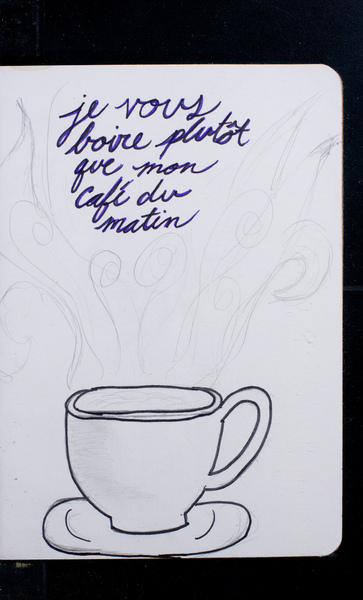 je vous
boire plutôt
que mon
café du
matin